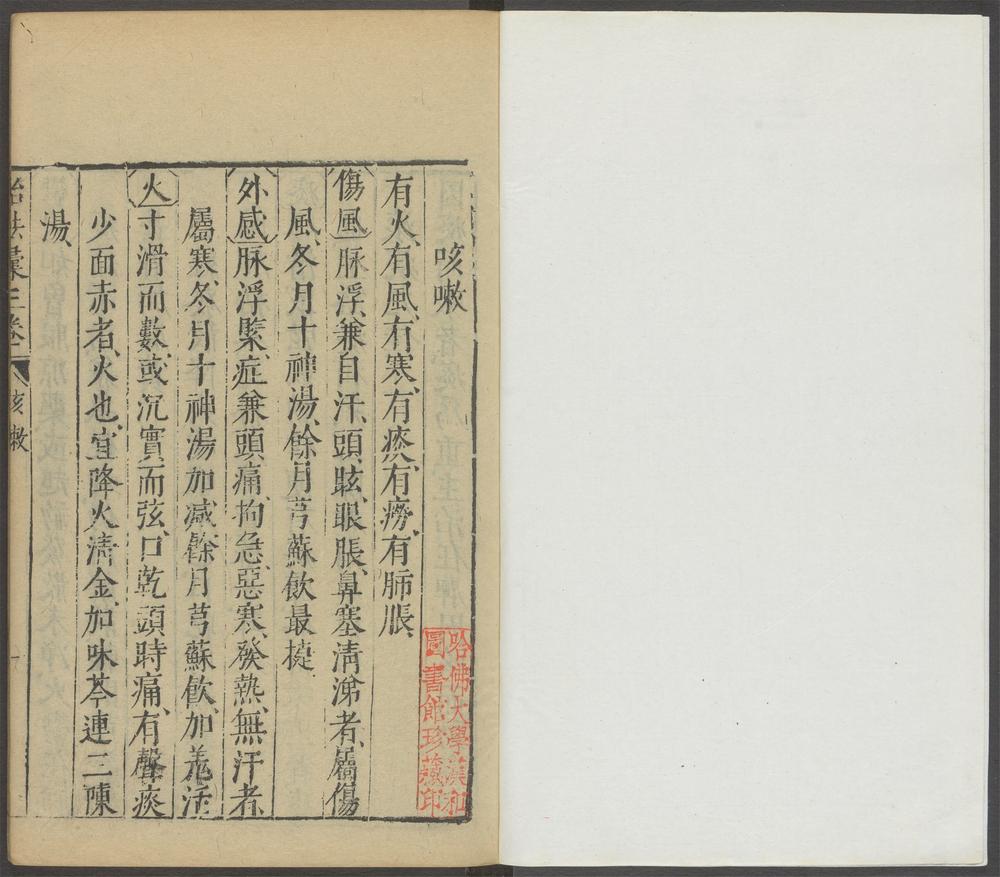 咳嗽
有火、有風、有寒、有痰、有癆、有肺脹、
傷風脉浮、兼自汗、頭眩、眼脹、鼻塞清涕者、屬傷
風、冬月十神湯、餘月芎蘇飲最捷
外感脉浮緊、症兼頭痛、拘急、惡寒、發熱、無汗者、
屬寒、冬月十神湯加减、餘月芎蘇飲、加羗活
火寸滑而數、或沉實而弦、口乾、頭時痛、有聲痰
少面赤者、火也、宜降火清金、加味芩連二陳
湯、
治法彙三卷 咳嗽
哈佛大學漢和
圖書館珍藏印